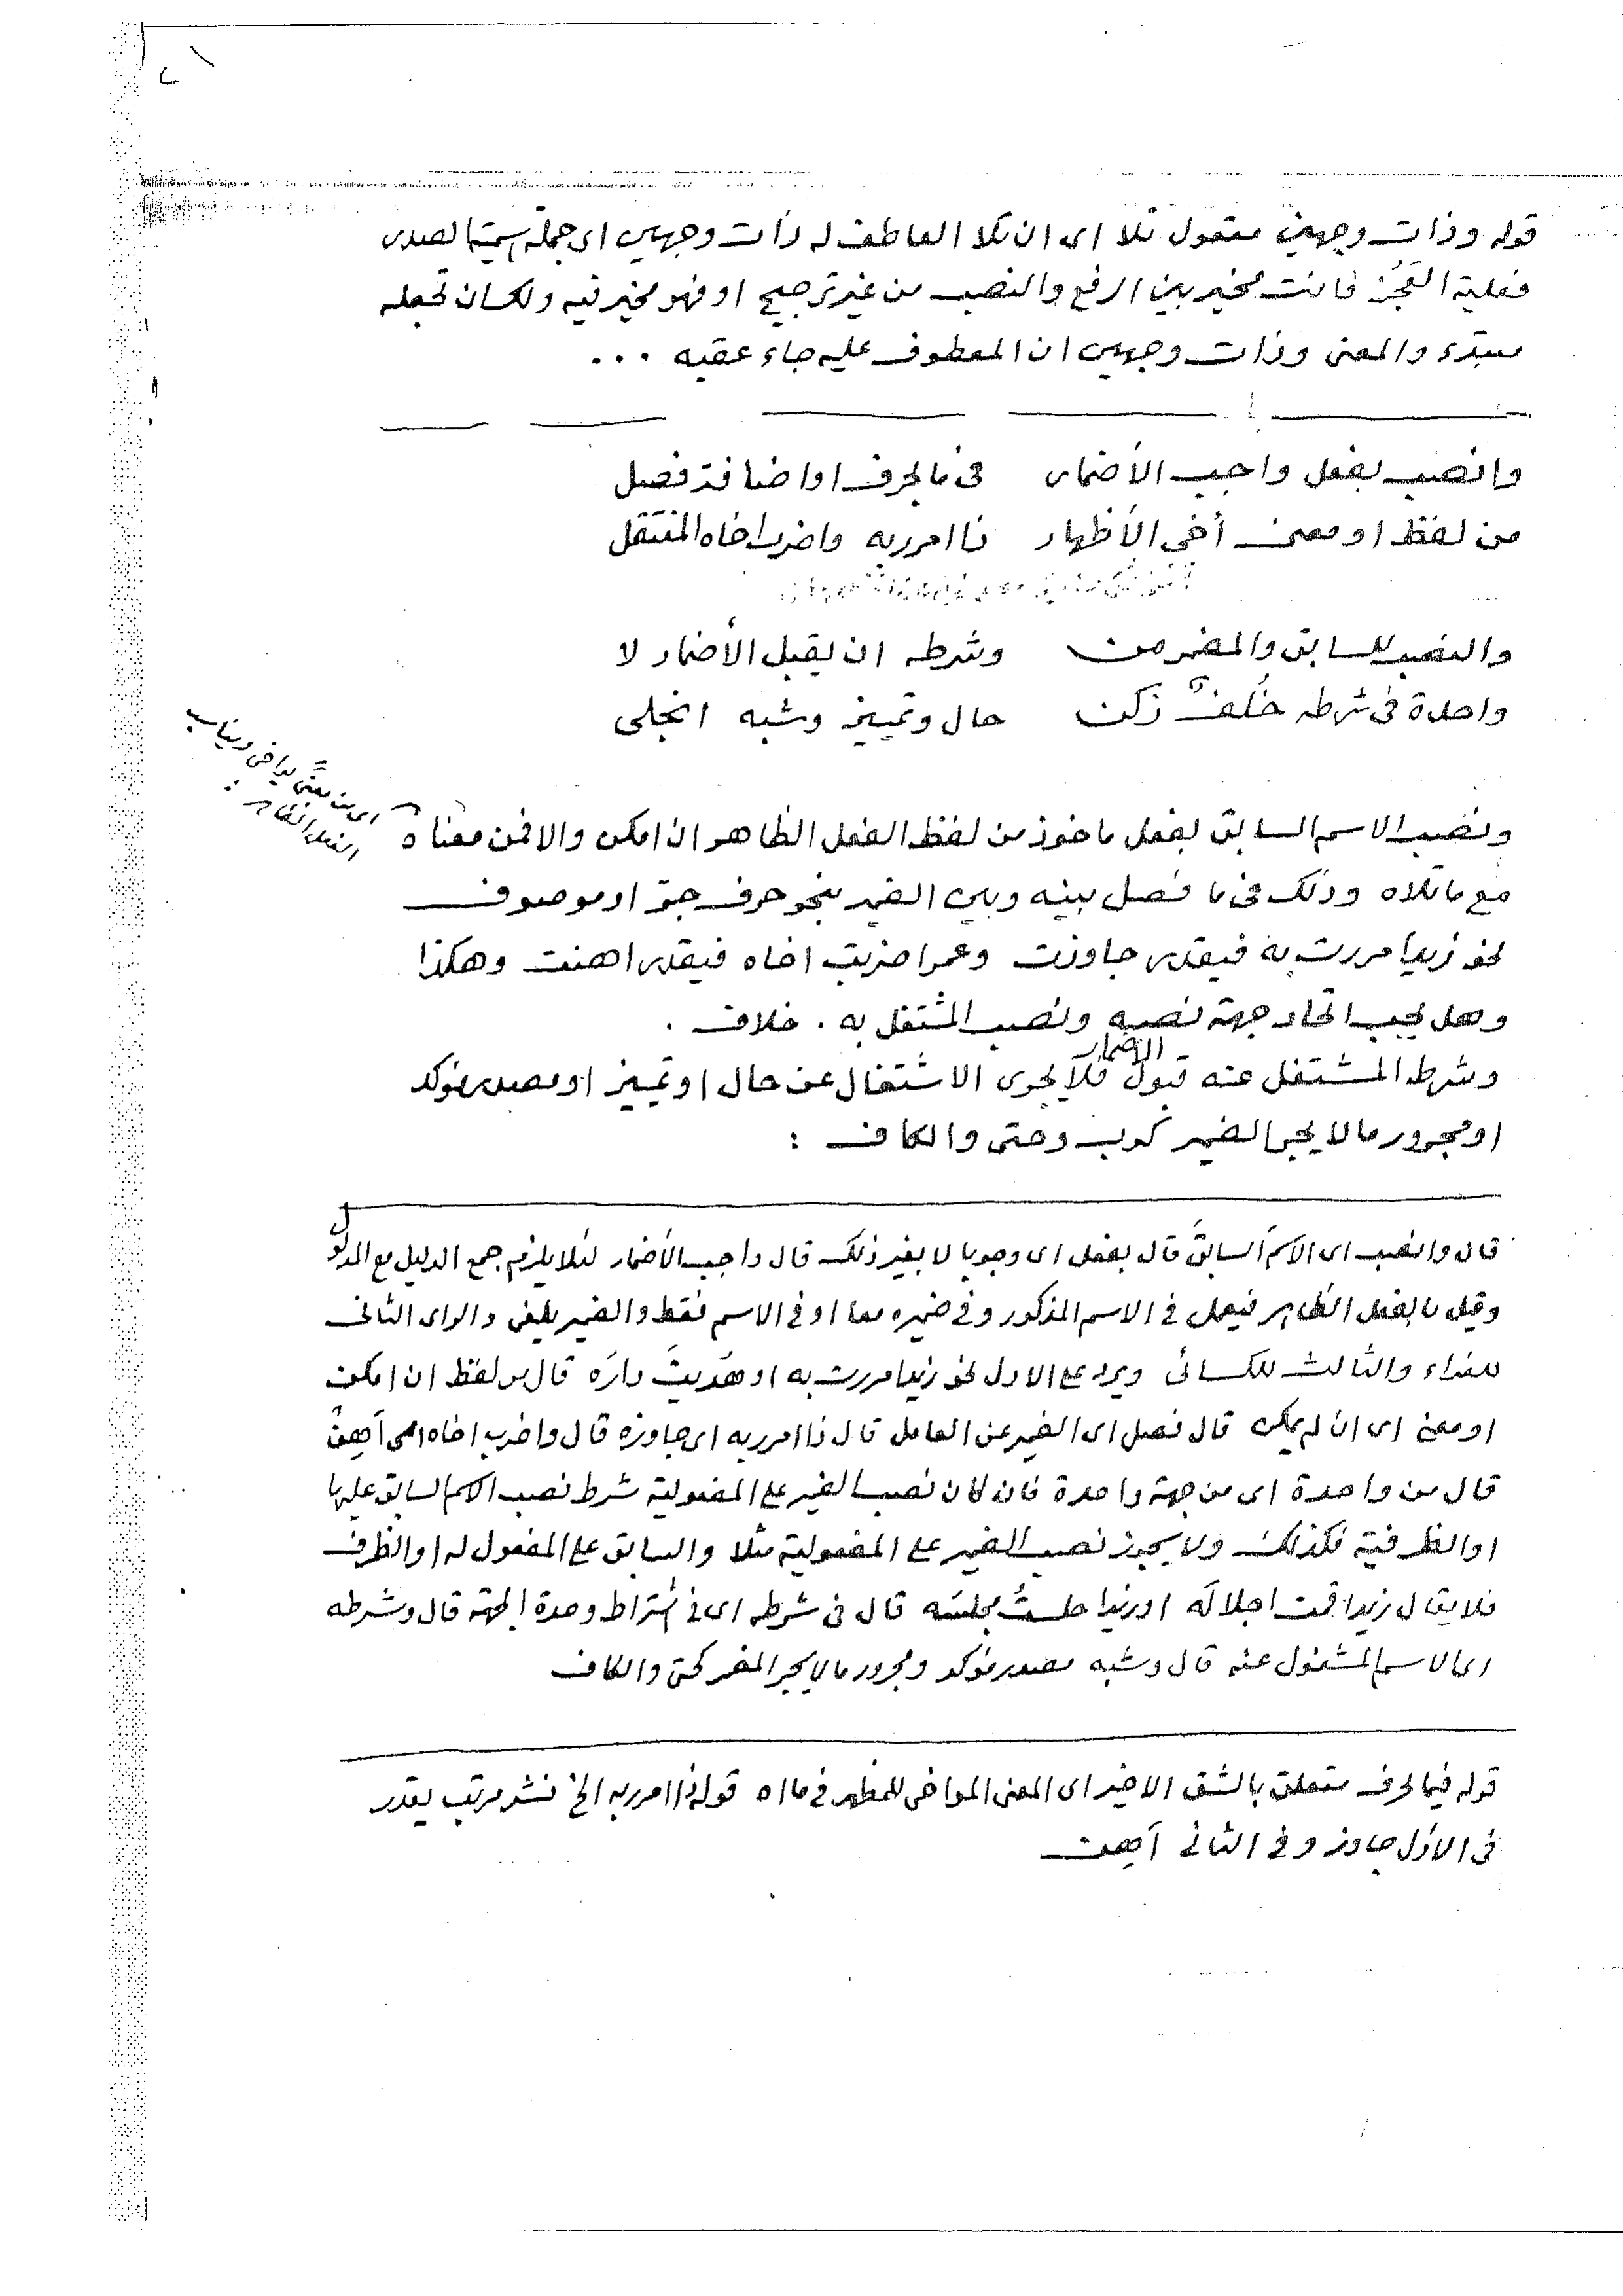 قوله وذات وجهين مفعول تلا اى ان تلا العاطف له ذات وجهين اى جملة اسمية الصدر
فعلية العَجُز فانت مخير بين الرفع والنصب من غير ترجيح او فهو مخير فيه ولك ان تجعله
مبتدء والمعنى وذات وجهين ان المعطوف عليه جاء عقبه ...
وانصب بفعل واجب الأضمار فى ما بحرف او اضافة فصل
من لفظ او معنى أخى الأظهار ذا امرر به واضرب اخاه المنتقل
والنصب للسابق والمضمر من وشرطه ان يقبل الأضمار لا
واحدة فى شرطه خُلفٌ زكن حال وتمييز وشبه انجلى
ونصب الاسم السابق بفعل ماخوذ من لفظ الفعل الظاهر ان امكن والا فمن معناه
اى من معنًى يواخى ويناسب
الفعل الظاهر
مع ما تلاه وذلك فى ما فصل بينه وبين الضمير بنحو حرف جرّ او موصوف
نحو زيدا مررت به فيقدر جاوزت وعمرا ضربت اخاه فيقدر اهنت وهكذا
وهل يجب اتحاد جهة نصبه ونصب المشتغل به . خلاف .
وشرط المشتغل عنه قبول الاضمار فلا يجرى الاشتغال عن حال او تمييز او مصدر مؤكد
او مجرور ما لا يجر الضمير كرب وحتى والكاف :
قال وانصب اى الاسم السابق قال بفعل اى وجوبا لا بغير ذلك قال واجب الأضمار لئلا يلزم جمع الدليل مع المدلول
وقيل بالفعل الظاهر فيعمل فى الاسم المذكور وفى ضميره معا او فى الاسم فقط والضمير يلغى والراى الثانى
للفراء والثالث للكسائى ويرد على الاول نحو زيدا مررت به او هدّيتَ دارَه قال من لفظ ان امكن
او معنى اى ان لم يمكن قال فصل اى الضمير عن العامل قال ذا امرر به اى جاوزه قال واضرب اخاه اى أهِنْ
قال من واحدة اى من جهة واحدة فان كان نصب الضمير على المفعولية شرط نصب الاسم السابق عليها
او الظرفية فكذلك ولا يجوز نصب الضمير على المفعولية مثلا والسابق على المفعول له او الظرف
فلا يقال زيدا قمت اجلالَه او زيدا جلستُ مجلسَه قال فى شرطه اى فى اشتراط وحدة الجهة قال وشرطه
اى الاسم المشغول عنه قال وشبه مصدر مؤكد ومجرور ما لا يجر المضمر كحتى والكاف
قوله فيما بحرف متعلق بالشق الاخير اى المعنى المواخى للمظهر فى ما اه قوله ذا امرر به الخ نشر مرتب يقدر
فى الاوّل جاوز وفى الثانى أهِن